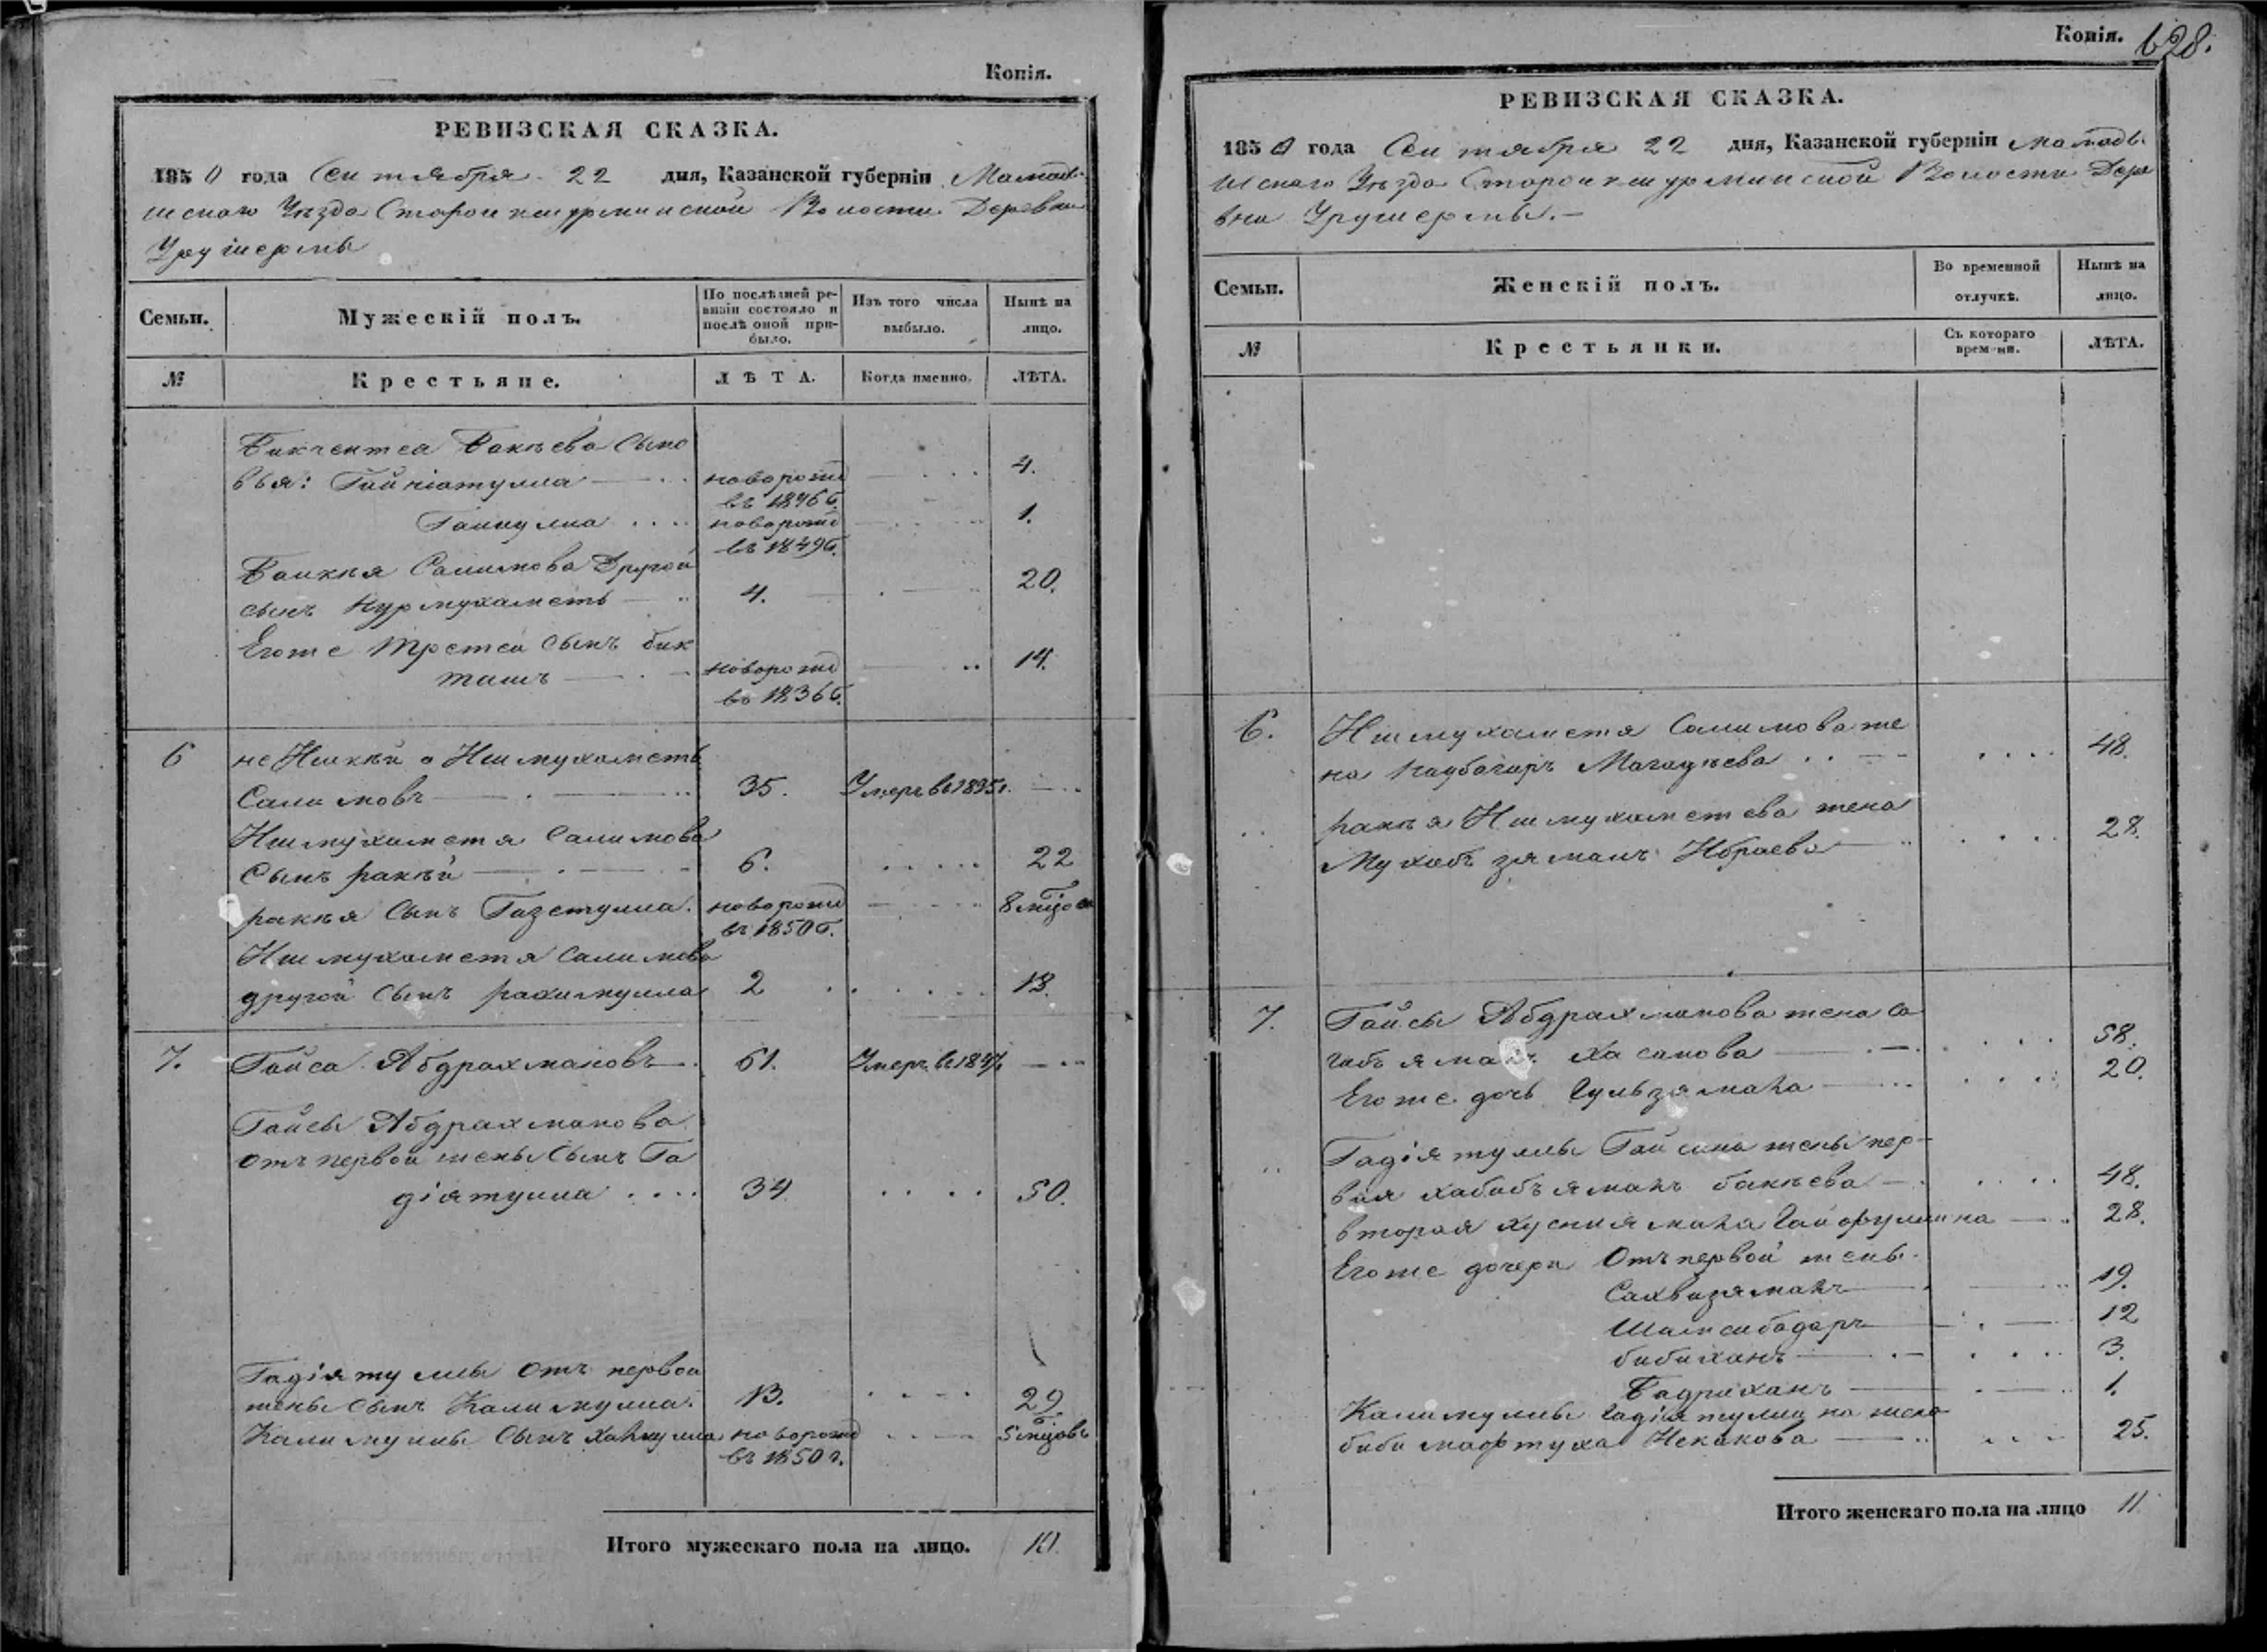 Копія.
РЕВИЗСКАЯ СКАЗКА.
1850 года Сентября 22 дня, Казанской губерніи Мамады-
шскаго Уѣзда Староикшурминской Волости Деревни
Урушермы
Семьи.
Мужескій полъ.
По послѣдней ре-
визіи состояло и
послѣ оной при-
было.
Изъ того числа
выбыло.
Нынѣ на
лицо.
№
Крестьяне.
ЛѢТА.
Когда именно.
ЛѢТА.
Бикчентея Бакѣева сыно
вья: Гайніатулла новорожд 4.
въ 1846 г.
новорожд 1.
въ 1849 г.
Салимова другой
сынъ Нурмухаметь 4. 20.
Егоже третей сынъ бик
ташъ новорожд 14.
въ 1836 г.
6 Ишмухаметь
Салимовъ 35. Умеръ въ 1835 г.
Ишмухаметя Салимова
сынъ ракѣй 6. 22
ракѣя сынъ Газетулла новорожд 8 мѣсо
въ 1850 г.
Ишмухаметя Салимова
другой сынъ рахимулла 2 18.
7. Гайса Абдрахмановъ 61. Умеръ въ
Гайсы Абдрахманова
отъ первой жены сынъ Га
діятулла 34 50.
Гадіятуллы отъ первой
жены сынъ Калимулла 13. 29
Калимуллы сынъ новорожд 5 мѣцовъ
въ 1850 г.
Итого мужескаго пола на лицо. 10.
Копія. 628.
РЕВИЗСКАЯ СКАЗКА.
1850 года Сентября 22 дня, Казанской губерніи Мамады-
шскаго Уѣзда Староикшурминской Волости Дере
вни Урушермы.
Семьи.
Женскій полъ.
Во временной
отлучкѣ.
Нынѣ на
лицо.
№
Крестьянки.
Съ котораго
времени.
ЛѢТА.
6. Ишмухаметя Салимова же
на Магадѣева 48.
ракѣя Ишмухаметева жена
Мухабъ замалъ Ибраева 28.
7. Гайсы Абдрахманова жена Са
Хасанова 58.
Егоже дочь Гульзямала 20.
Гадіятуллы Гайсина жены пер-
вая бакѣева 48.
вторая Гайфуллина 28.
Егоже дочери отъ первой жены
19.
Шамсибадаръ 12
бибиханъ 3.
Бадриханъ 1.
Калимуллы Гадіятуллина жена
биби мафтуха Искакова 25.
Итого женскаго пола на лицо 11.